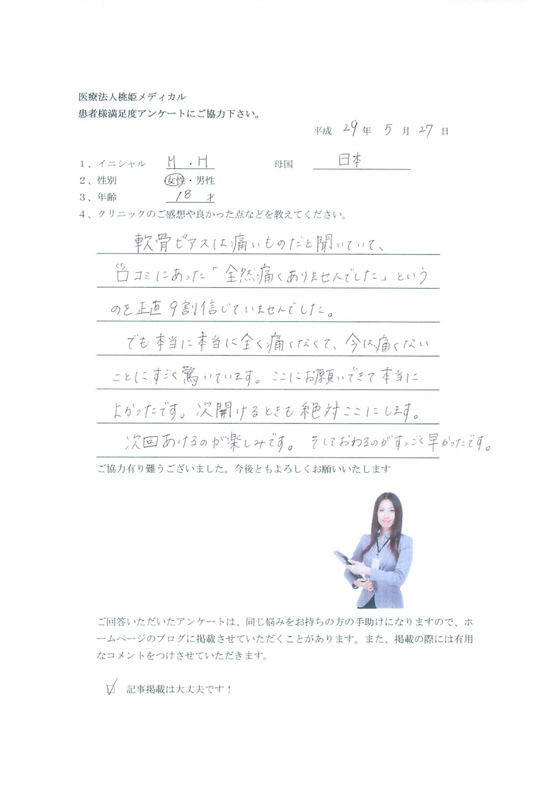 医療法人桃姫メディカル
患者様満足度アンケートにご協力下さい。
平成 29 年 5 月 27 日
1、イニシャル M・H 母国 日本
2、性別 女性・男性
3、年齢 18 才
4、クリニックのご感想や良かった点などを教えてください。
軟骨ピアスは痛いものだと聞いていて、
口コミにあった「全然痛くありませんでした」という
のを正直9割信じていませんでした。
でも本当に本当に全く痛くなくて、今は痛くない
ことにすごく驚いています。ここにお願いできて本当に
よかったです。次開けるときも絶対ここにします。
次回あけるのが楽しみです。そしておわるのがすっごく早かったです。
ご協力有り難うございました。今後ともよろしくお願いいたします
ご回答いただいたアンケートは、同じ悩みをお持ちの方の手助けになりますので、ホ
ームページのブログに掲載させていただくことがあります。また、掲載の際には有用
なコメントをつけさせていただきます。
記事掲載は大丈夫です！